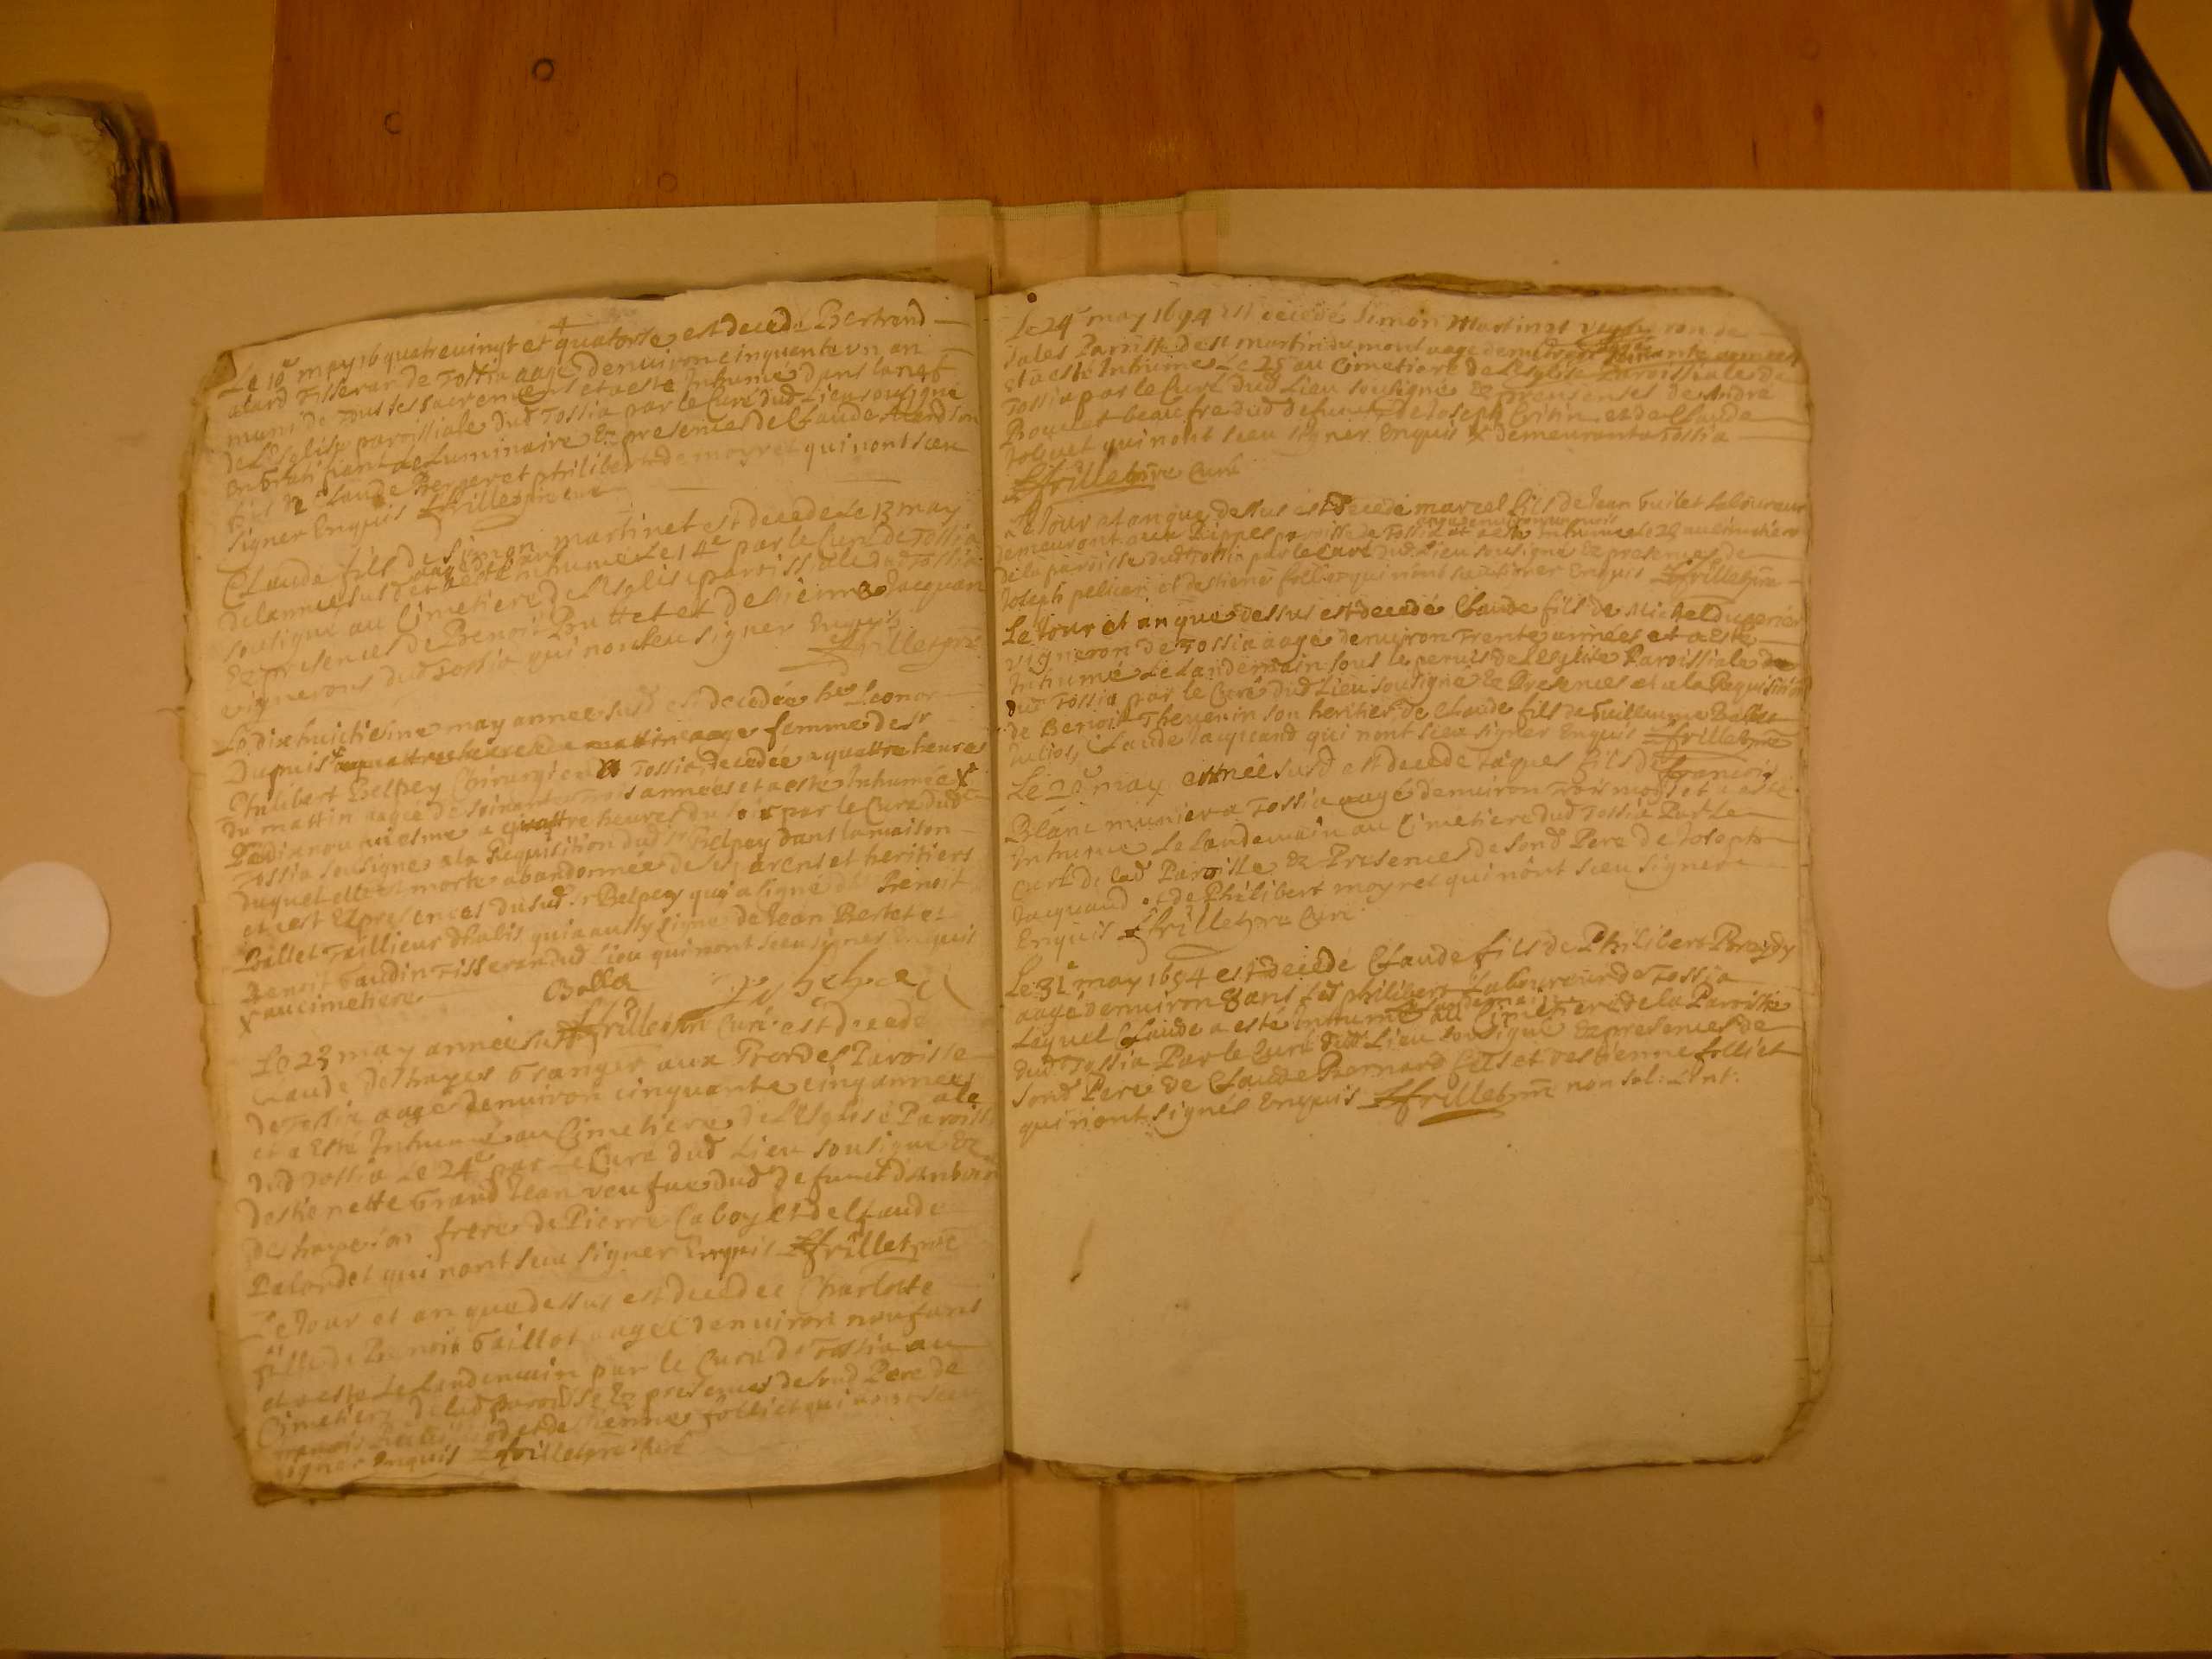 Le 10e may 16 quatrevingt et quatorse est decedé Bertrand
alard Tisseran de Tossia aagé denuiron cinquante vn an
muni de Tous les sacremens et a esté Inhumé dans la nef
de LEsglise paroissiale dud Tossia par le Curé dud Lieu sousigné
luminaire Ez presences de Claude alard son
fils de Claude Berger et philibert de moyret qui nont sceu
signer Enquis ffrillet pre curé
Claude fils de Simon martinet est decedé Le 13 may
de lannée susd et a esté Inhumé Le 14e par le Curé de Tossia
sousigné au Cimetiere de LEsglise paroissiale dud Tossia
Ez presences de Benoit Buttet et destienne Jacquan
vignerons dud Tossia qui nont sceu signer Enquis
ffrillet pre
Le dixhuictiesme may annee susd est decedée Leonor
Dupuis aage femme de sr
Philibert Belpey Chirurgien a Tossia decedée a quattre heures
du mattin aagée de soixante trois années et a esté Inhumée X
Le dixnoufuiesme a quattre heures du soir par le Curé dud
Tossia sousigné a la Requisition dud sr Belpey dans la maison
duquel elle est morte abandonnée de ses parens et heritiers
et cest Ez presences du sud sr Belpey qui a signé de Benoit
Ballet Taillieur dhabis qui a aussy signé de Jean Bertet et
Benoit Gaudin Tisseran dud Lieu qui nont sceu signer Enquis
X au cimetiere
Ballet
ffrillet pre Curé
Le 23 may année susd est decedé
Claude destrayes Granger aux Trondes Paroisse
de Tossia aagé denuiron cinquante cinq années
et a Esté Inhumé au Cimetiere de LEsglise Paroissiale
dud Tossia Le 24e par Le Curé dud Lieu sousigné Ez
destienette Grand Jean veufue dud defunct danthoine
destraye son frere de Pierre Caboy et de Claude
Palordet qui nont sceu signer Enquis ffrillet pre
Le Jour et an que dessus est decedée Charlotte
fille de Benoit Gaillot aagée denuiron neuf ans
et a esté Le Landemain par le Curé de Tossia au
Cimetiere de lad paroisse Ez presences de sond Pere de
et destienne folliet qui nont sceu
signer Enquis ffrillet pre Curé
Le 24e may 1694 est decedé Simon Martinat vigneron de
Sales Paroisse de st martin du mont aagé denuiron soixante années
et a esté Inhumé Le 25e au Cimetiere de LEsglise Paroissiale de
Tossia par le Curé dud Lieu sousigné Ez presences de Andre
Bouvet beau fre dud defunct de Joseph Critin et de Claude
Joluet qui nont sceu signer Enquis X demeurant a Tossia
ffrillet pre Curé
Le Jour et an que dessus est decedé marcel fils de Jean Guilet Laboureur
demeurant aux Rippes paroisse de Tossia et a esté Inhumé Le 25 au cimetiere
aagé denuiron un mois
de la paroisse dud Tossia par le Curé dud Lieu sousigné Ez presences de
Joseph pelican et destienne folliet qui nont sceu signer Enquis ffrillet pre
Le Jour et an que dessus est decedé Claude fils de Michel
vigneron de Tossia aagé denuiron Trente années et a Esté
Inhumé Le Landemain sous le peruis de LEsglise Paroissiale de
dud Tossia par le Curé dud Lieu sousigné Ez Presences et a la Requisition
de Benoit Theuenin son heritier, de Claude fils de Guillaume Ballet
Claude Jacquand qui nont sceu signer Enquis ffrillet pre
Le 28e may année susd est decedé Jaques fils de francois
Blanc munier a Tossia aagé denuiron Trois mois et a esté
Inhumé Le Landemain au Cimetiere dud Tossia Par Le
Curé de lad Paroisse Ez Presences de sond Pere de Joseph
Jacquand et de Philibert moyret qui nont sceu signer
Enquis ffrillet pre Curé
Le 31e may 1694 est decedé Claude fils de Philibert
aagé denuiron 8 ans Led philibert Laboureur de Tossia
Lequel Claude a esté Inhumé au Cimetiere de la Paroisse
le landemain
dud Tossia Par le Curé dud Lieu sousigné Ez presences de
sond Pere de Claude Bernard fils et destienne folliet
qui n'ont signés Enquis ffrillet pre non sol: Lent: